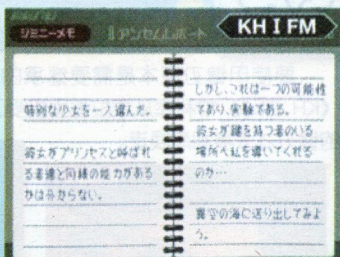 ジミニーメモ
アンセムレポート
KH I FM
特別な少女を一人選んだ。
彼女がプリンセスと呼ばれ
る者達と同様の能力がある
かは分からない。
しかし、これは一つの可能性
であり、実験である。
彼女が鍵を持つ者のいる
場所へ私を導いてくれる
のか…
異空の海に送り出してみよ
う。